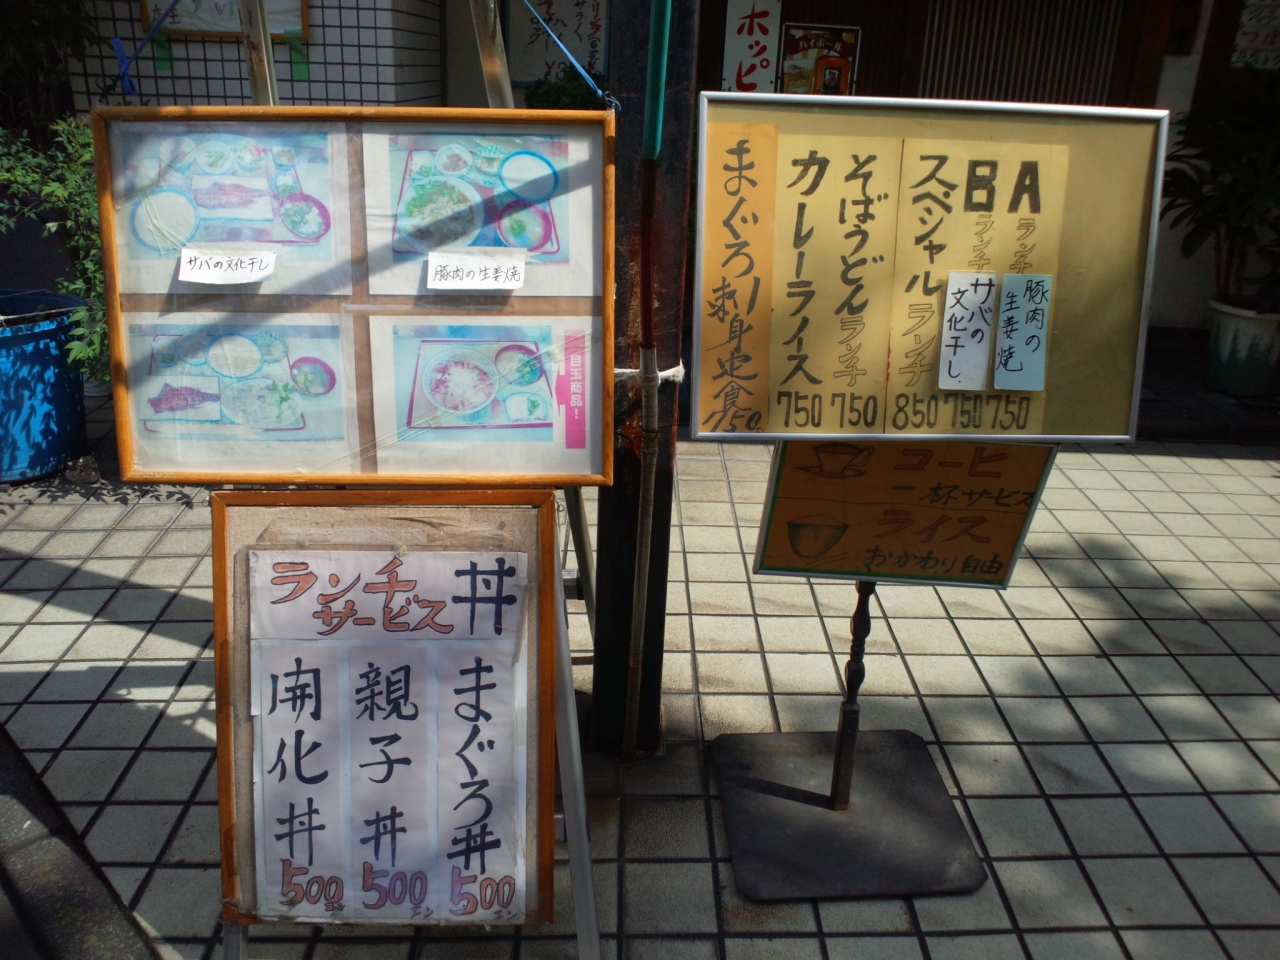 ホッピ
ハイボール
サバの文化干し
豚肉の生姜焼
目玉商品!
Aランチ
豚肉の生姜焼
750
Bランチ
サバの文化干し
750
スペシャルランチ
850
そばうどんランチ
750
カレーライス
750
まぐろ刺身定食
750
コーヒー
一杯サービス
ライス
おかわり自由
ランチサービス丼
まぐろ丼
500エン
親子丼
500エン
開化丼
500エン